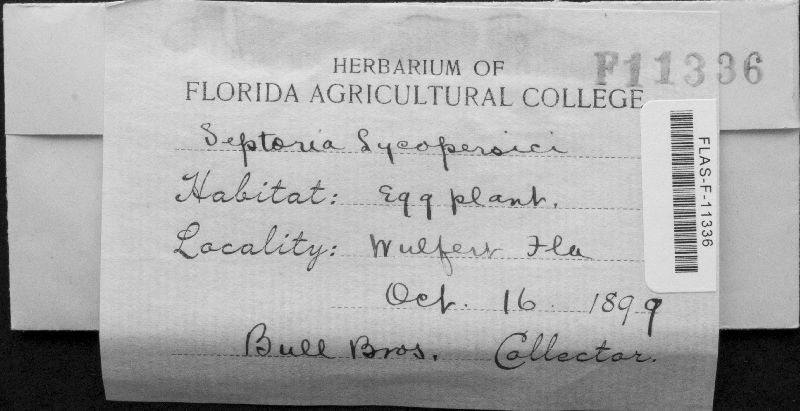 HERBARIUM OF
F11336
FLORIDA AGRICULTURAL COLLEGE
Septoria Lycopersici
Habitat: Egg plant.
Locality: Wulfert Fla
Oct. 16. 1899
Bull Bros. Collector.
FLAS-F-11336